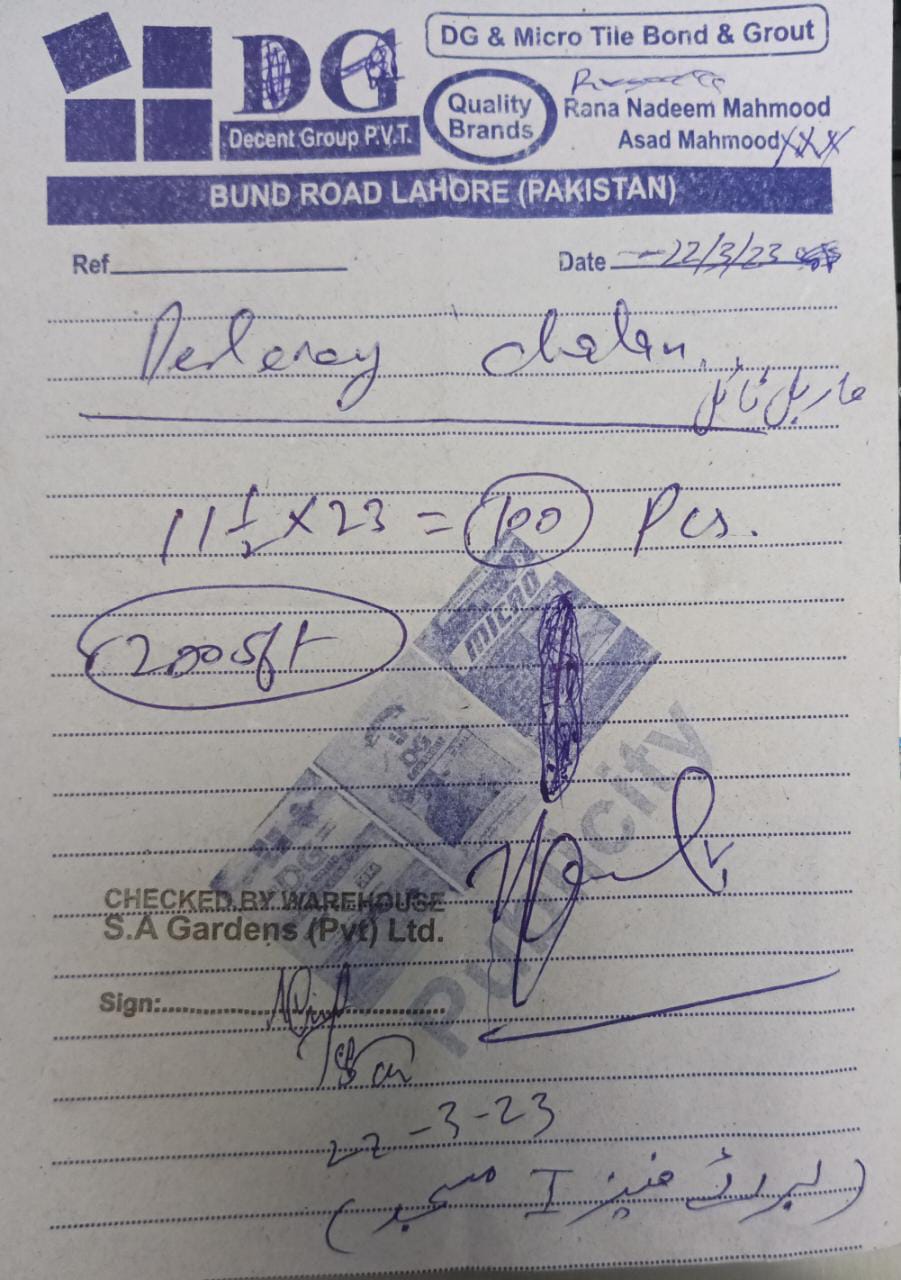 DG & Micro Tile Bond & Grout
DG
Decent Group P.V.T.
Quality
Brands
Rana Nadeem Mahmood
Asad Mahmood XXX
BUND ROAD LAHORE (PAKISTAN)
Ref
Date 22/3/23
Deleray chalan.
ماربل ٹائل
11 1/2 X 23 = 100 Pcs.
200 Sft
MICRO
DG
DG
Publicity
CHECKED BY WAREHOUSE
S.A Gardens (Pvt) Ltd.
Sign:
22-3-23
(برائے فیز I مسجد)